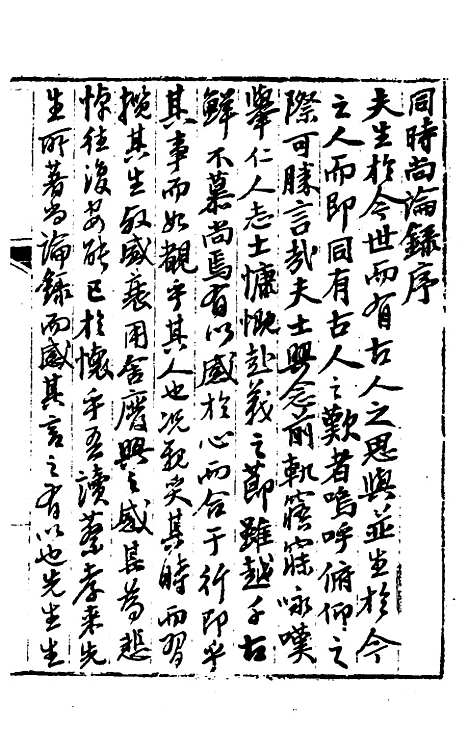 同時尚論錄序
夫生於今世而有古人之思與並生於今
之人而即同有古人之歎者嗚呼俯仰之
際可勝言哉夫士興念前軌寤寐咏嘆
舉仁人志士慷慨赴義之節雖越千古
鮮不慕尚焉有以感於心而合于行即乎
其事而如覩乎其人也况親炙其時而習
攬其生殺盛衰用舍廢興之感其為悲
悼往復安能已於懷乎吾讀蔡孝來先
生所著尚論錄而感其言之有以也先生生